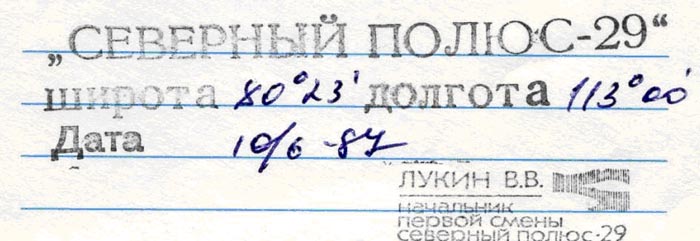 „СЕВЕРНЫЙ ПОЛЮС-29“
широта 80°23' долгота 113°00'
Дата 10/6-87
ЛУКИН В.В.
начальник
первой смены
северный полюс-29